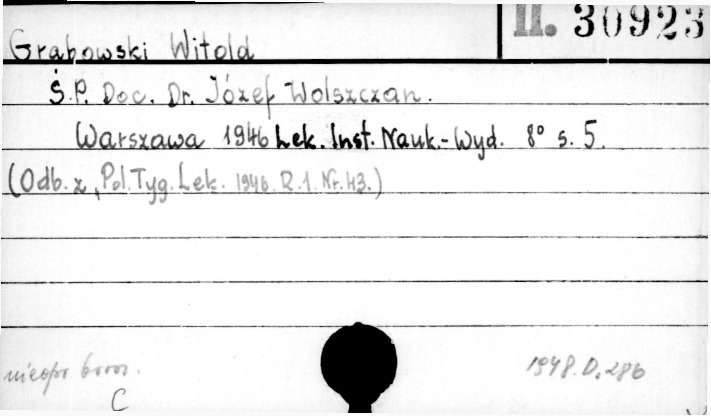 II. 30923
Grabowski Witold
Ś.P. Doc. Dr. Józef Wolszczan.
Warszawa 1946 Lek. Inst. Nauk.-Wyd. 8° s. 5.
(Odb. z „Pol. Tyg. Lek. 1946. R. 1. Nr. 43.)
nieopr. brosz.
1948.D.286
C